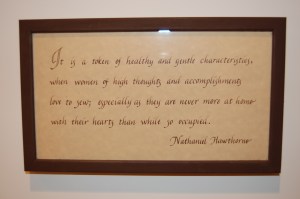 It is a token of healthy and gentle characteristics,
when women of high thoughts and accomplishments
love to sew; especially as they are never more at home
with their hearts than while so occupied.
Nathaniel Hawthorne